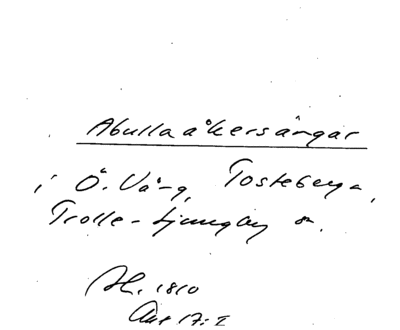 Abullaåkersängar
i Ö. Vång, Tosteberga,
Trolle-Ljungby sn.
1810
Akt 17: I